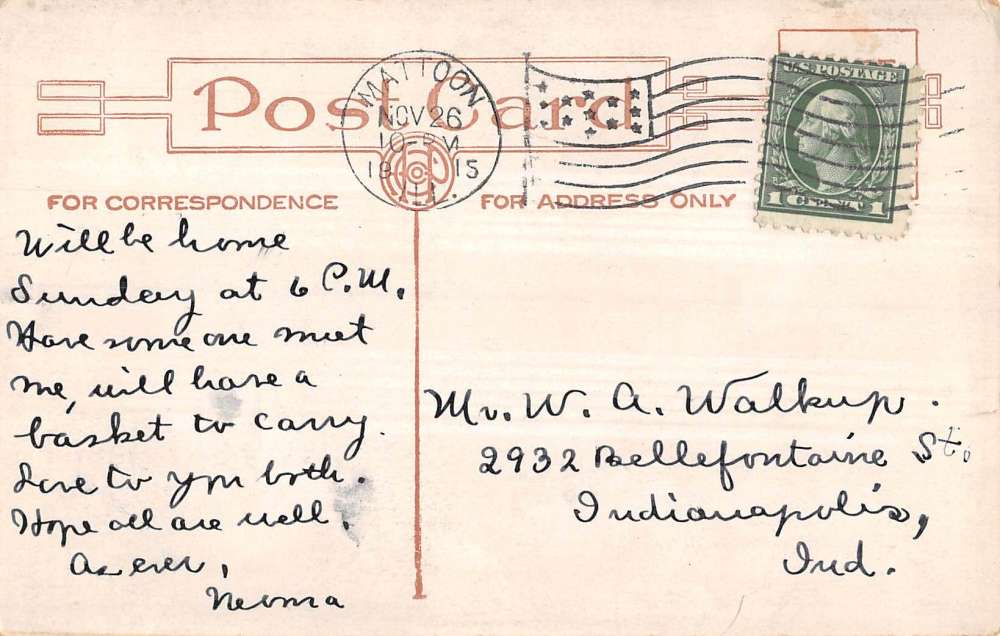 Post Card
MATTOON
NOV 26
10-PM
1915
ILL.
U.S. POSTAGE
1 CENT 1
FOR CORRESPONDENCE
FOR ADDRESS ONLY
Will be home
Sunday at 6 P.M.
Have some one meet
me, will have a
basket to carry.
Love to you both.
Hope all are well.
As ever,
Neoma
Mr. W. A. Walkup.
2932 Bellefontaine St.
Indianapolis,
Ind.